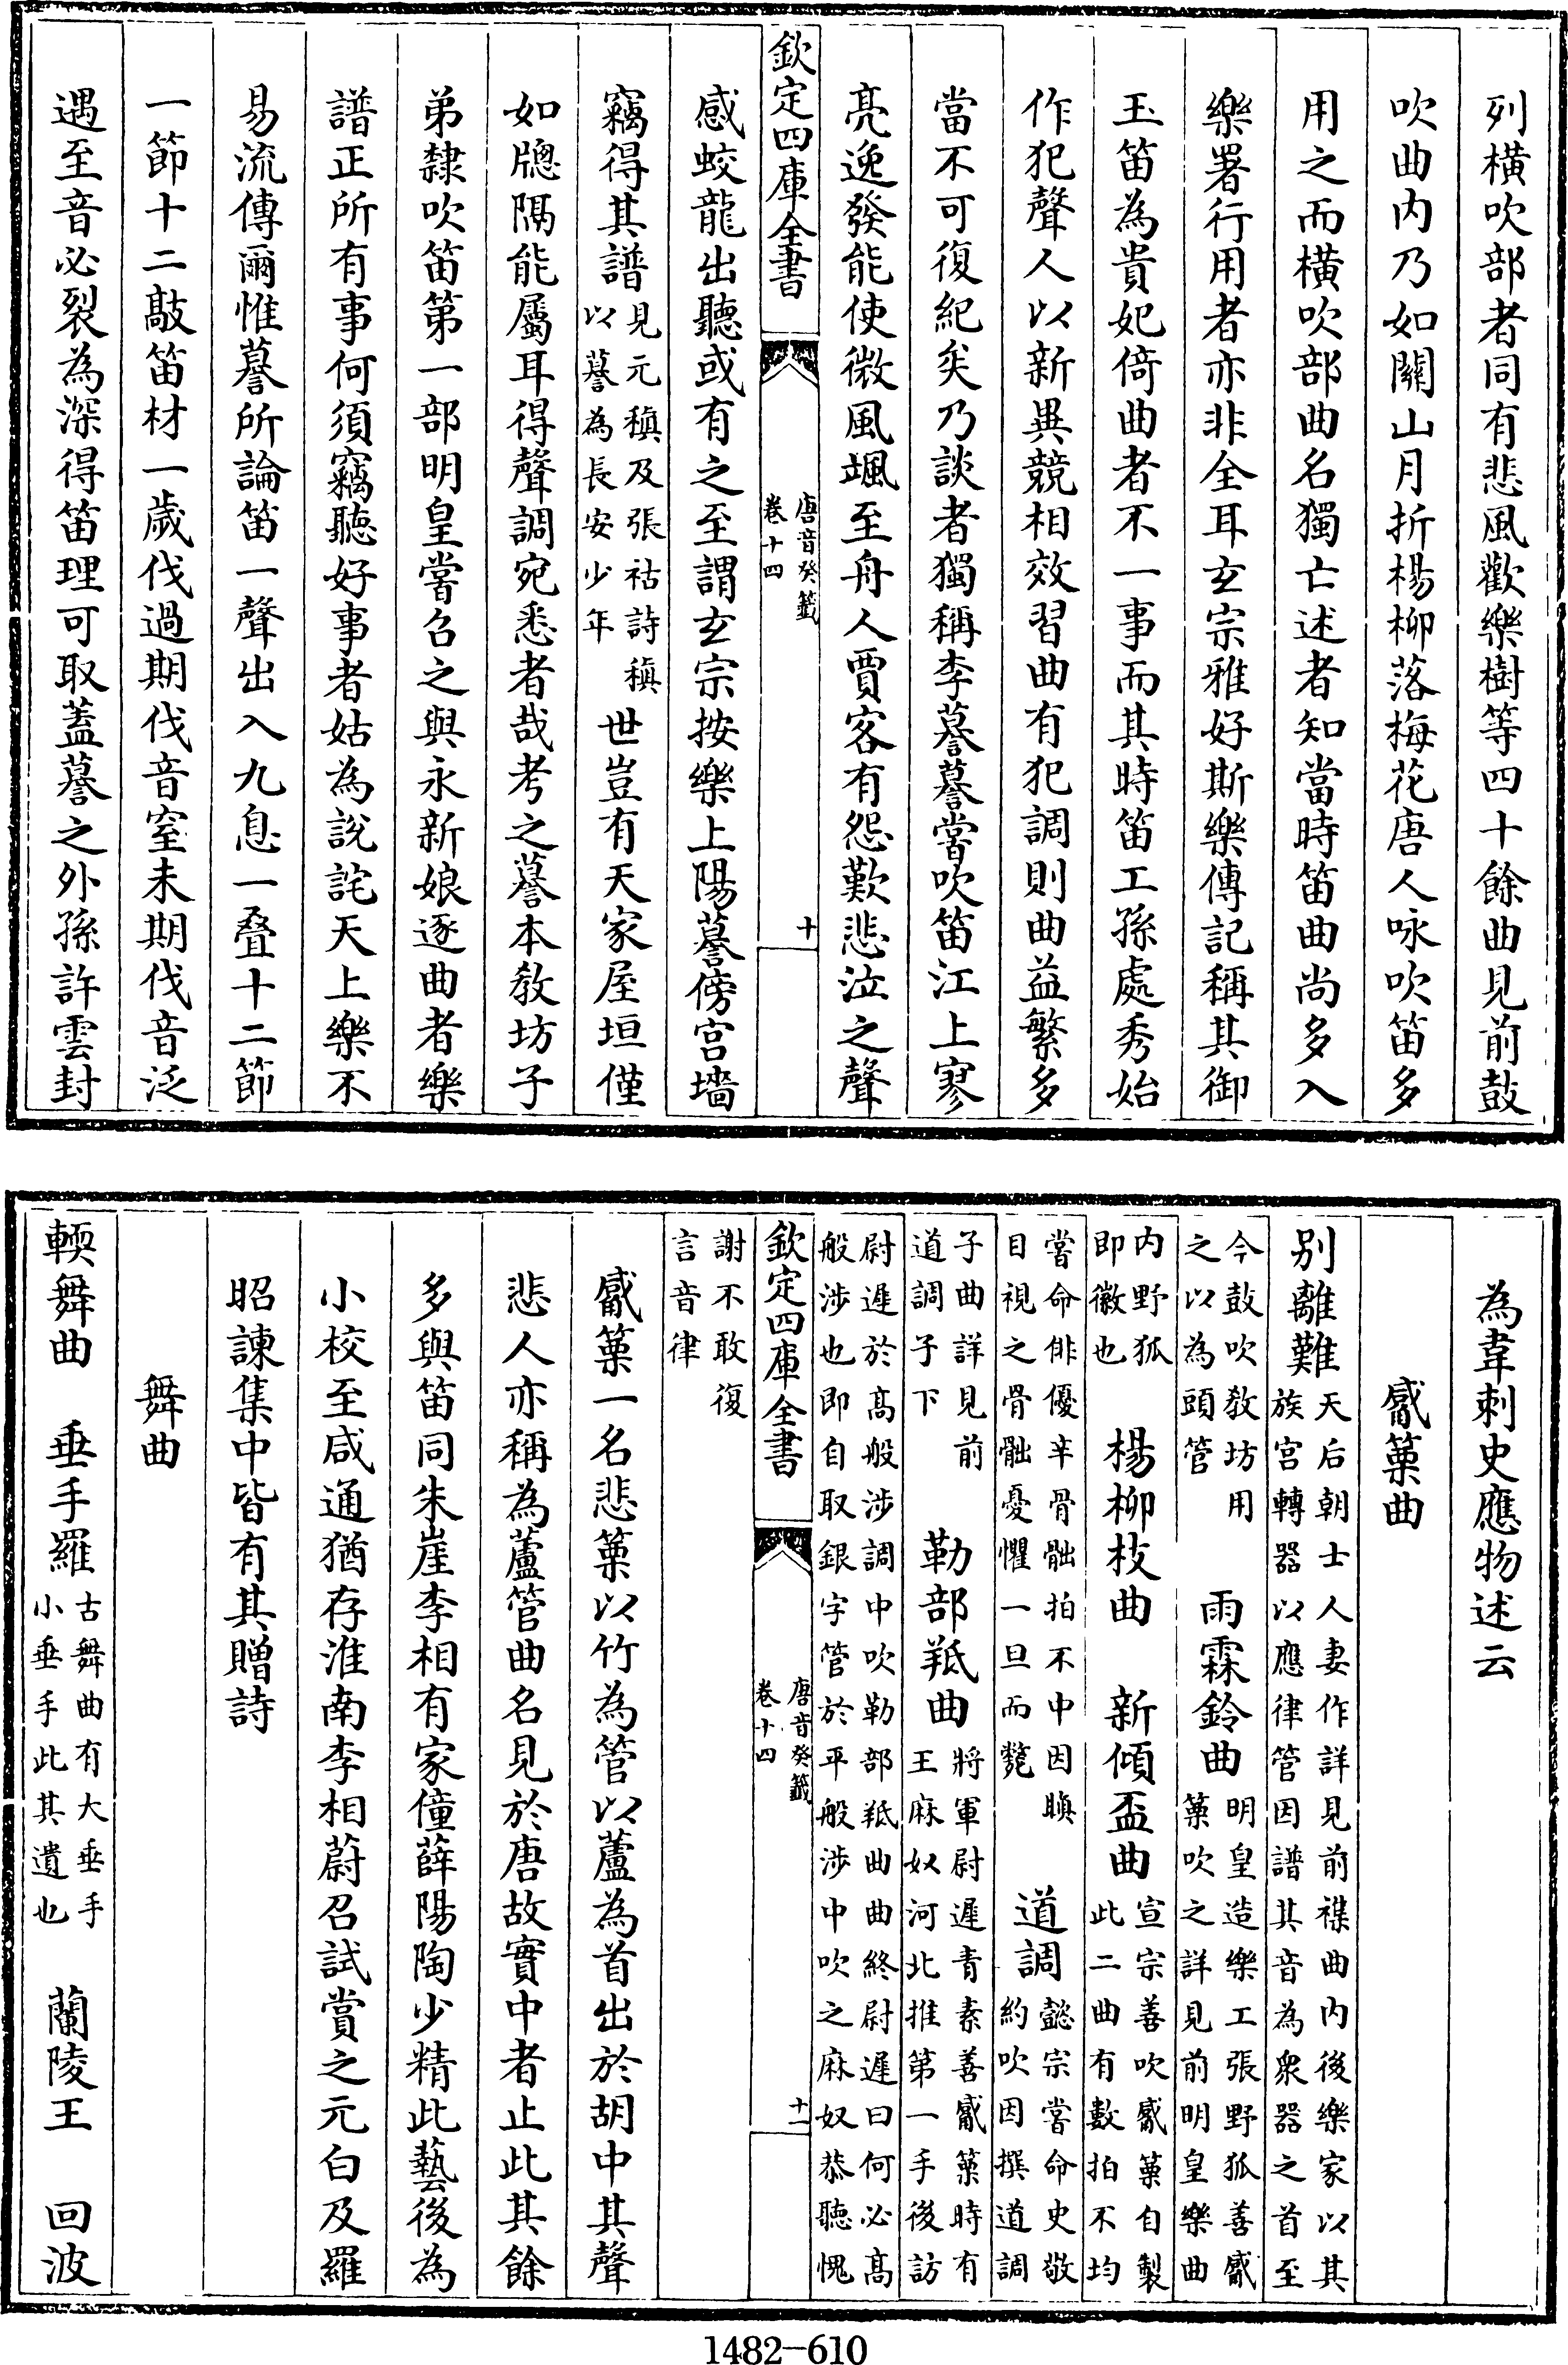 列橫吹部者同有悲風歡樂樹等四十餘曲見前鼓
吹曲内乃如關山月折楊柳落梅花唐人咏吹笛多
用之而橫吹部曲名獨亡述者知當時笛曲尚多入
樂署行用者亦非全耳玄宗雅好斯樂傳記稱其御
玉笛為貴妃倚曲者不一事而其時笛工孫處秀始
作犯聲人以新異競相效習曲有犯調則曲益繁多
當不可復紀矣乃談者獨稱李謩謩嘗吹笛江上寥
亮逸發能使微風颯至舟人賈客有怨歎悲泣之聲
欽定四庫全書
唐音癸籤
卷十四
十
感蛟龍出聽或有之至謂玄宗按樂上陽謩傍宫墻
竊得其譜見元稹及張祜詩稹以謩為長安少年世豈有天家屋垣僅
如牕隔能屬耳得聲調宛悉者哉考之謩本敎坊子
弟隸吹笛第一部明皇嘗召之與永新娘逐曲者樂
譜正所有事何須竊聽好事者姑為說詫天上樂不
易流傳爾惟謩所論笛一聲出入九息一叠十二節
一節十二敲笛材一歲伐過期伐音窒未期伐音泛
遇至音必裂為深得笛理可取蓋謩之外孫許雲封
為韋刺史應物述云
觱篥曲
别離難天后朝士人妻作詳見前禖曲内後樂家以其族宫轉器以應律管因譜其音為衆器之首至
今鼓吹敎坊用之以為頭管　雨霖鈴曲明皇造樂工張野狐善觱篥吹之詳見前明皇樂曲
内野狐即徽也　楊柳枝曲　新傾盃曲宣宗善吹觱篥自製此二曲有數拍不均
嘗命俳優辛骨䶥拍不中因瞋目視之骨䶥憂懼一旦而斃　道調懿宗嘗命史敬約吹因撰道調
子曲詳見前道調子下　勒部羝曲將軍尉遲青素善觱篥時有王麻奴河北推第一手後訪
尉遲於髙般涉調中吹勒部羝曲曲終尉遲曰何必髙般涉也即自取銀字管於平般涉中吹之麻奴恭聽愧
欽定四庫全書
唐音癸籤
卷十四
十一
謝不敢復言音律
觱篥一名悲篥以竹為管以蘆為首出於胡中其聲
悲人亦稱為蘆管曲名見於唐故實中者止此其餘
多與笛同朱崖李相有家僮薛陽陶少精此藝後為
小校至咸通猶存淮南李相蔚召試賞之元白及羅
昭諫集中皆有其贈詩
舞曲
輭舞曲　垂手羅古舞曲有大垂手小垂手此其遺也　蘭陵王　回波
1482-610